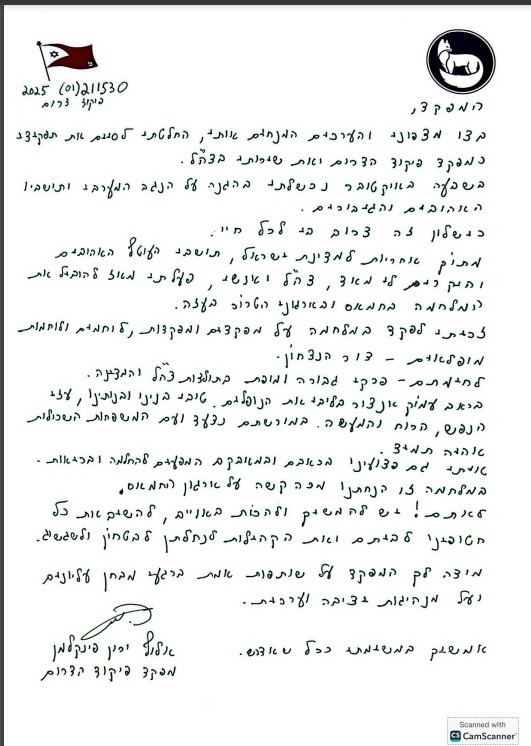 211530(01)2025
פיקוד דרום
המפקד,
בצו מצפוני והערכים המנחים אותי, החלטתי לסיים את תפקידי
כמפקד פיקוד הדרום ואת שירותי בצה"ל.
בשבעה באוקטובר נכשלתי בהגנה על הנגב המערבי ותושביו
האהובים והגיבורים.
כישלון זה צרוב בי לכל חיי.
מתוך אחריות למדינת ישראל, תושבי העוטף האהובים
והיקרים לי מאד, צה"ל ואנשיו, פעלתי מאז להוביל את
המלחמה בחמאס ובארגוני הטרור בעזה.
זכיתי לפקד במלחמה על מפקדים ומפקדות, לוחמים ולוחמות
מופלאים - דור הנצחון.
לחימתם - פרקי גבורה ומופת בתולדות צה"ל והמדינה.
בכאב עמוק אנצור בליבי את הנופלים. טובי בנינו ובנותינו, עזי
הנפש, הרוח והמעשה. במורשתם נצעד ועם המשפחות השכולות
אהיה תמיד.
איתי גם פצועינו בכאבם ובמאבקם המפעים להחלמה ובריאות.
במלחמה זו הנחתנו מכה קשה על ארגון החמאס.
לא תם! יש להמשיך ולהכות באוייב, להשיב את כל
חטופינו לביתם ואת הקהילות לנחלתן לבטחון ולשגשוג.
מודה לך המפקד על שותפות אמת ברגעי מבחן עליונים
ועל מנהיגות יציבה וערכית.
אמשיך במשימתי ככל שאדרש.
אלוף ירון פינקלמן
מפקד פיקוד הדרום
Scanned with
CS CamScanner